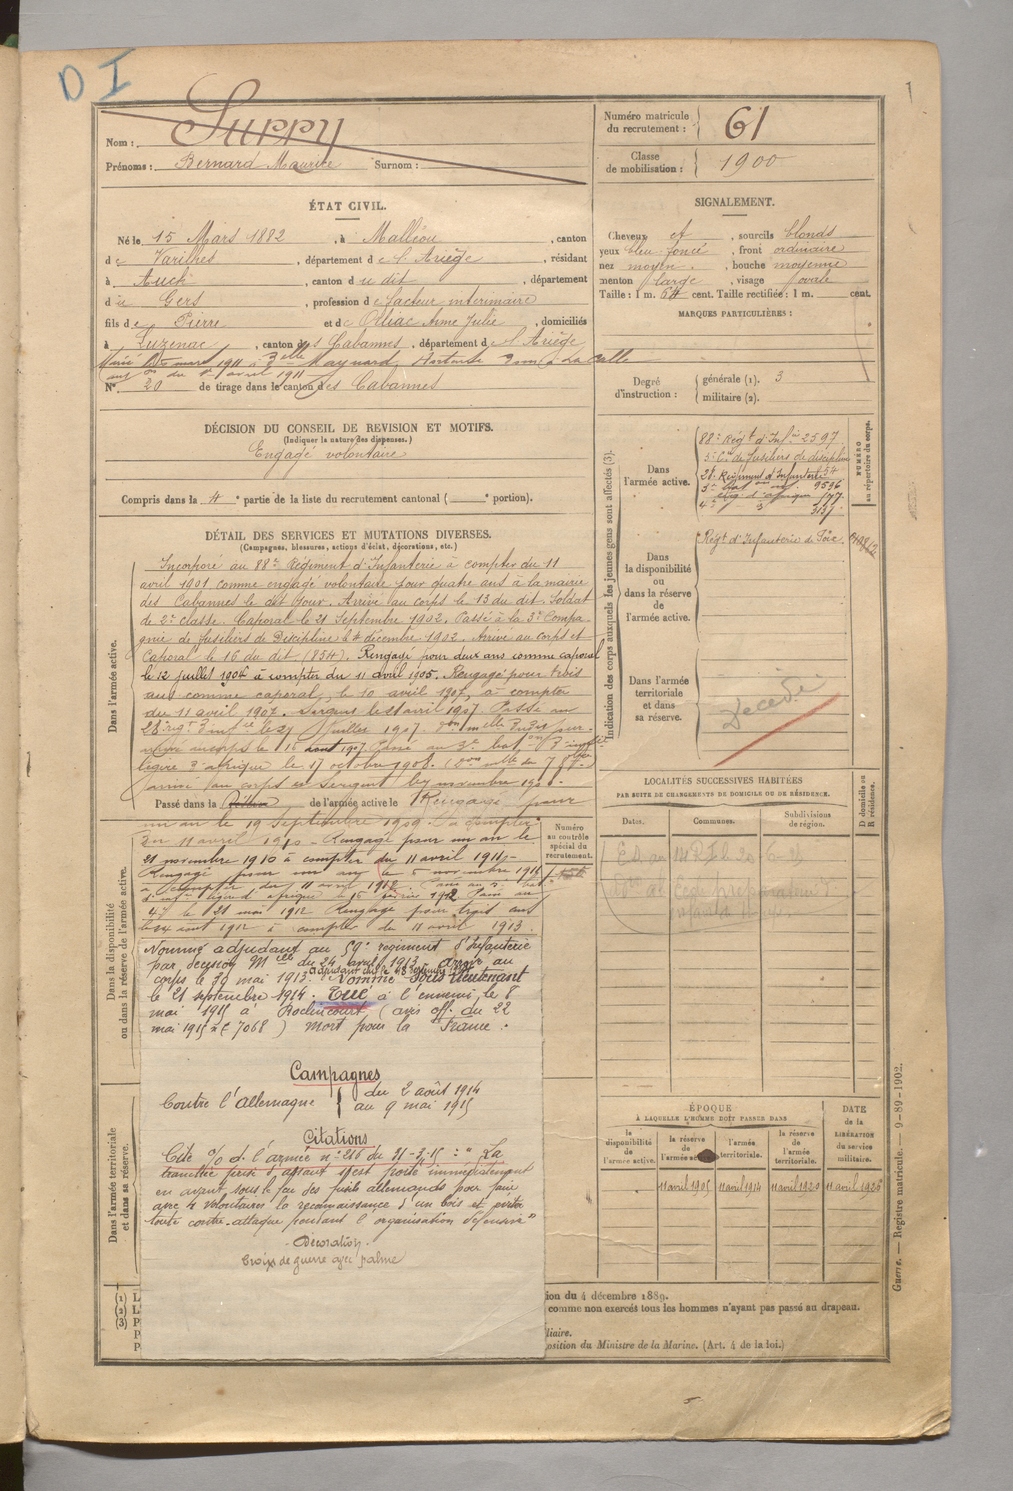 D I
1
Nom : Surry
Prénoms : Bernard Maurice Surnom :
Numéro matricule du recrutement : 61
Classe de mobilisation : 1900
ÉTAT CIVIL.
Né le 15 Mars 1882, à Malléon, canton
de Varilhes, département de l'Ariège, résidant
à Auch, canton du dit, département
du Gers, profession de facteur intérimaire
fils de Pierre et de Olliac Anne Julie, domiciliés
à Luzenac, canton des Cabannes, département de l'Ariège
Marié le mars 1911 à Maynard Hortense La Calle
du avril 1911
N° 20 de tirage dans le canton des Cabannes
SIGNALEMENT.
Cheveux et, sourcils blonds
yeux bleu foncé, front ordinaire
nez moyen, bouche moyenne
menton large, visage ovale
Taille : 1 m. 64 cent. Taille rectifiée : 1 m. cent.
MARQUES PARTICULIÈRES :
Degré d'instruction : générale (1). 3
militaire (2).
DÉCISION DU CONSEIL DE REVISION ET MOTIFS.
(Indiquer la nature des dispenses.)
Engagé volontaire
Compris dans la 4e partie de la liste du recrutement cantonal ( e portion).
DÉTAIL DES SERVICES ET MUTATIONS DIVERSES.
(Campagnes, blessures, actions d'éclat, décorations, etc.)
Dans l'armée active.
Incorporé au 88e Régiment d'Infanterie à compter du 11
avril 1901 comme engagé volontaire pour quatre ans à la mairie
des Cabannes le dit jour. Arrivé au corps le 13 du dit. Soldat
de 2e classe. Caporal le 21 Septembre 1902. Passé à la 3e Compa
gnie de fusiliers de Discipline le décembre 1902. Arrivé au corps et
Caporal le 16 du dit (854). Rengagé pour deux ans comme caporal
le 12 juillet 1904 à compter du 11 avril 1905. Rengagé pour trois
ans comme caporal, le 10 avril 1907, à compter
du 11 avril 1907. Sergent le avril 1907. Passé au
28e régt d'inf le juillet 1907.
arrivé au corps le 16 aout 1907. Passé au 3e baton d'infrie
légère d'afrique le 17 octobre 1908.
arrivé au corps et Sergent le novembre 1908.
Passé dans la de l'armée active le Rengagé pour
un an le 19 septembre 1909 à compter
Dans la disponibilité ou dans la réserve de l'armée active.
du 11 avril 1910 - Rengagé pour un an le
21 novembre 1910 à compter du 11 avril 1911 -
Rengagé pour un an le 5 novembre 1911
à compter du 11 avril 1912. Passé au
d'inf légère d'afrique le 16 février 1912 Passé au
4e le 21 mai 1912 Rengagé pour trois ans
le août 1912 à compter du 11 avril 1913.
Nommé adjudant au 59e régiment d'Infanterie
par décision Mlle du 24 avril 1913 arrivé au
corps le 30 mai 1913. Nommé Sous Lieutenant
le 21 septembre 1914. Tué à l'ennemi le 8
mai 1915 à Roclincourt (avis off. du 22
mai 1915 7068) Mort pour la France.
Campagnes
Contre l'allemagne du 2 août 1914
au 9 mai 1915
Citations
Cité % d. l'armée n° 216 du 31-3-15 : "La
tranchée prise d'assaut s'est porté immédiatement
en avant sous le feu des fusils allemands pour faire
avec 4 volontaires la reconnaissance d'un bois et
toute contre-attaque pendant l'organisation défensive"
Décoration.
Croix de guerre avec palme
Numéro au contrôle spécial du recrutement.
Indication des corps auxquels les jeunes gens sont affectés (3).
NUMÉRO au répertoire du corps.
Dans l'armée active.
88e Régt d'Infie 2597
3e Cie de fusiliers de discipline
28e Régiment d'Infanterie
3e 9536
Dans la disponibilité ou dans la réserve de l'armée active.
Régt d'Infanterie de Foix.
Dans l'armée territoriale et dans sa réserve.
Décédé
LOCALITÉS SUCCESSIVES HABITÉES
PAR SUITE DE CHANGEMENTS DE DOMICILE OU DE RÉSIDENCE.
Dates.
Communes.
Subdivisions de région.
D domicile ou R résidence.
ÉPOQUE
À LAQUELLE L'HOMME DOIT PASSER DANS
la disponibilité de l'armée active.
la réserve de l'armée active.
l'armée territoriale.
la réserve de l'armée territoriale.
DATE de la LIBÉRATION du service militaire.
11 avril 1905
11 avril 1914
11 avril 1920
11 avril 1926
Dans l'armée territoriale et dans sa réserve.
(1) L
(2) L
(3) P
P
P
ion du 4 décembre 1889.
comme non exercés tous les hommes n'ayant pas passé au drapeau.
liaire.
osition du Ministre de la Marine. (Art. 4 de la loi.)
Guerre. — Registre matricule. — 9-89-1902.